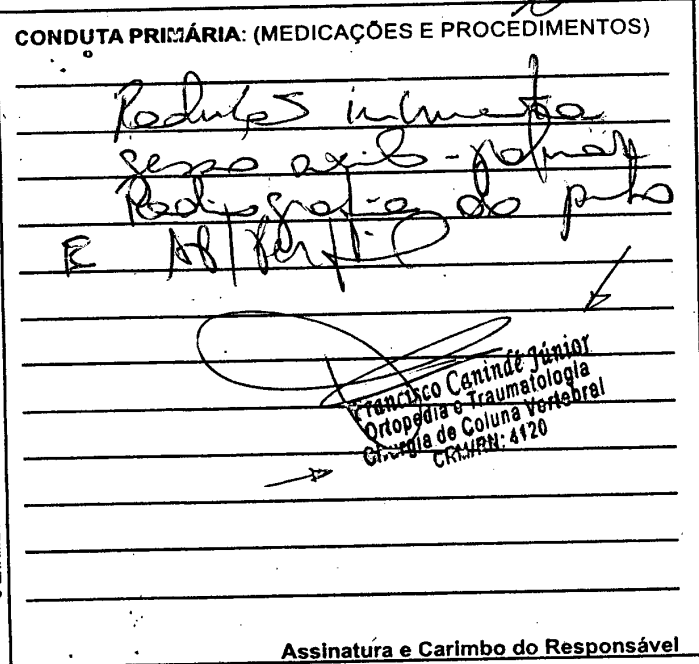 CONDUTA PRIMÁRIA: (MEDICAÇÕES E PROCEDIMENTOS)
Redução incruenta
gesso axilo-palmar
Radiografia do punho
E AP/Perfil
Francisco Canindé Júnior
Ortopedia e Traumatologia
Cirurgia de Coluna Vertebral
CRM/RN: 4120
Assinatura e Carimbo do Responsável